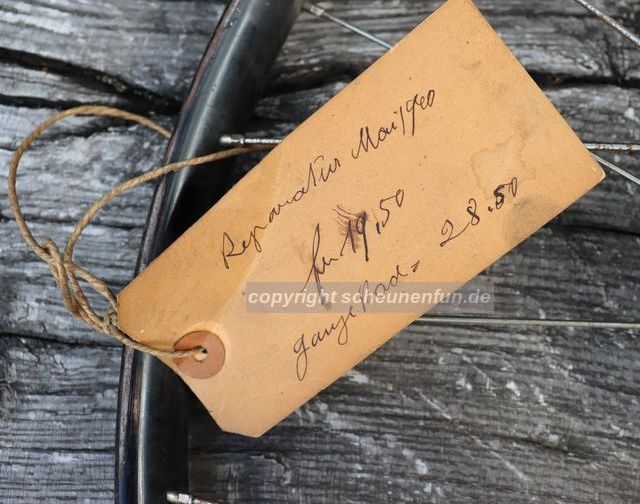 Reparatur Mai 1940
für 19,50
ganze Rad = 28.50
copyright scheunenfun.de